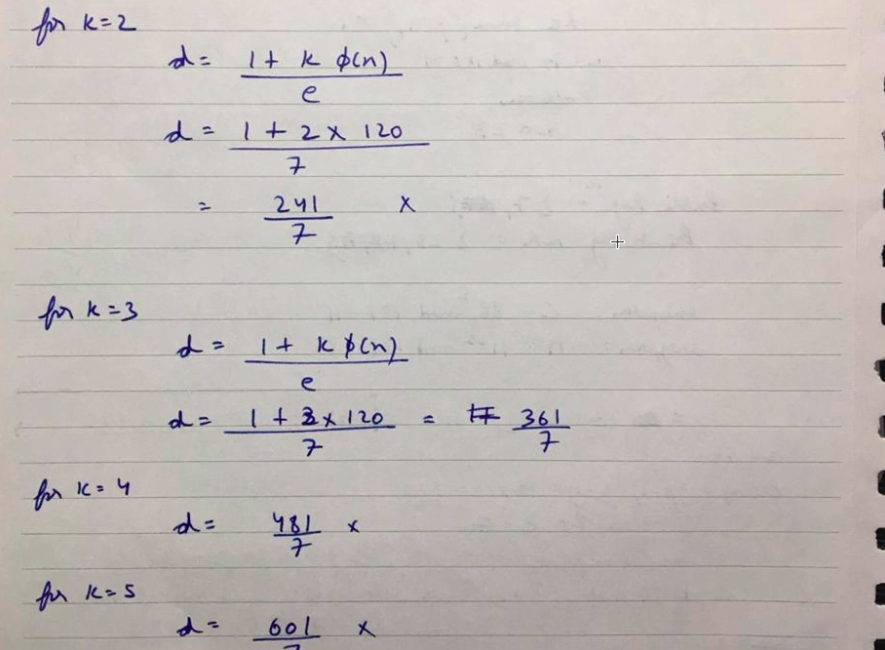 for k=2
d = 1 + k φ(n)
e
d = 1 + 2 x 120
7
= 241 x
7
for k=3
d = 1 + k φ(n)
e
d = 1 + 3 x 120 = 361
7 7
for k=4
d = 481 x
7
for k=5
d = 601 x
7